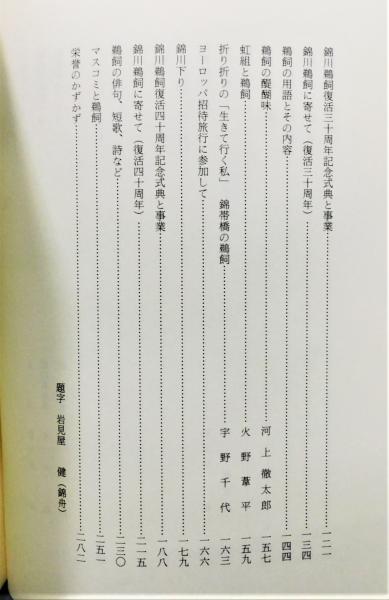 錦川鵜飼復活三十周年記念式典と事業……一二一
錦川鵜飼に寄せて（復活三十周年）……一三四
鵜飼の用語とその内容……一四四
鵜飼の醍醐味……河上徹太郎……一五七
虹組と鵜飼……火野葦平……一五九
折り折りの「生きて行く私」　錦帯橋の鵜飼……宇野千代……一六三
ヨーロッパ招待旅行に参加して……一六六
錦川下り……一七九
錦川鵜飼復活四十周年記念式典と事業……一八八
錦川鵜飼に寄せて（復活四十周年）……二一五
鵜飼の俳句、短歌、詩など……二三〇
マスコミと鵜飼……二五一
栄誉のかずかず……二八二
題字　岩見屋　健（錦舟）